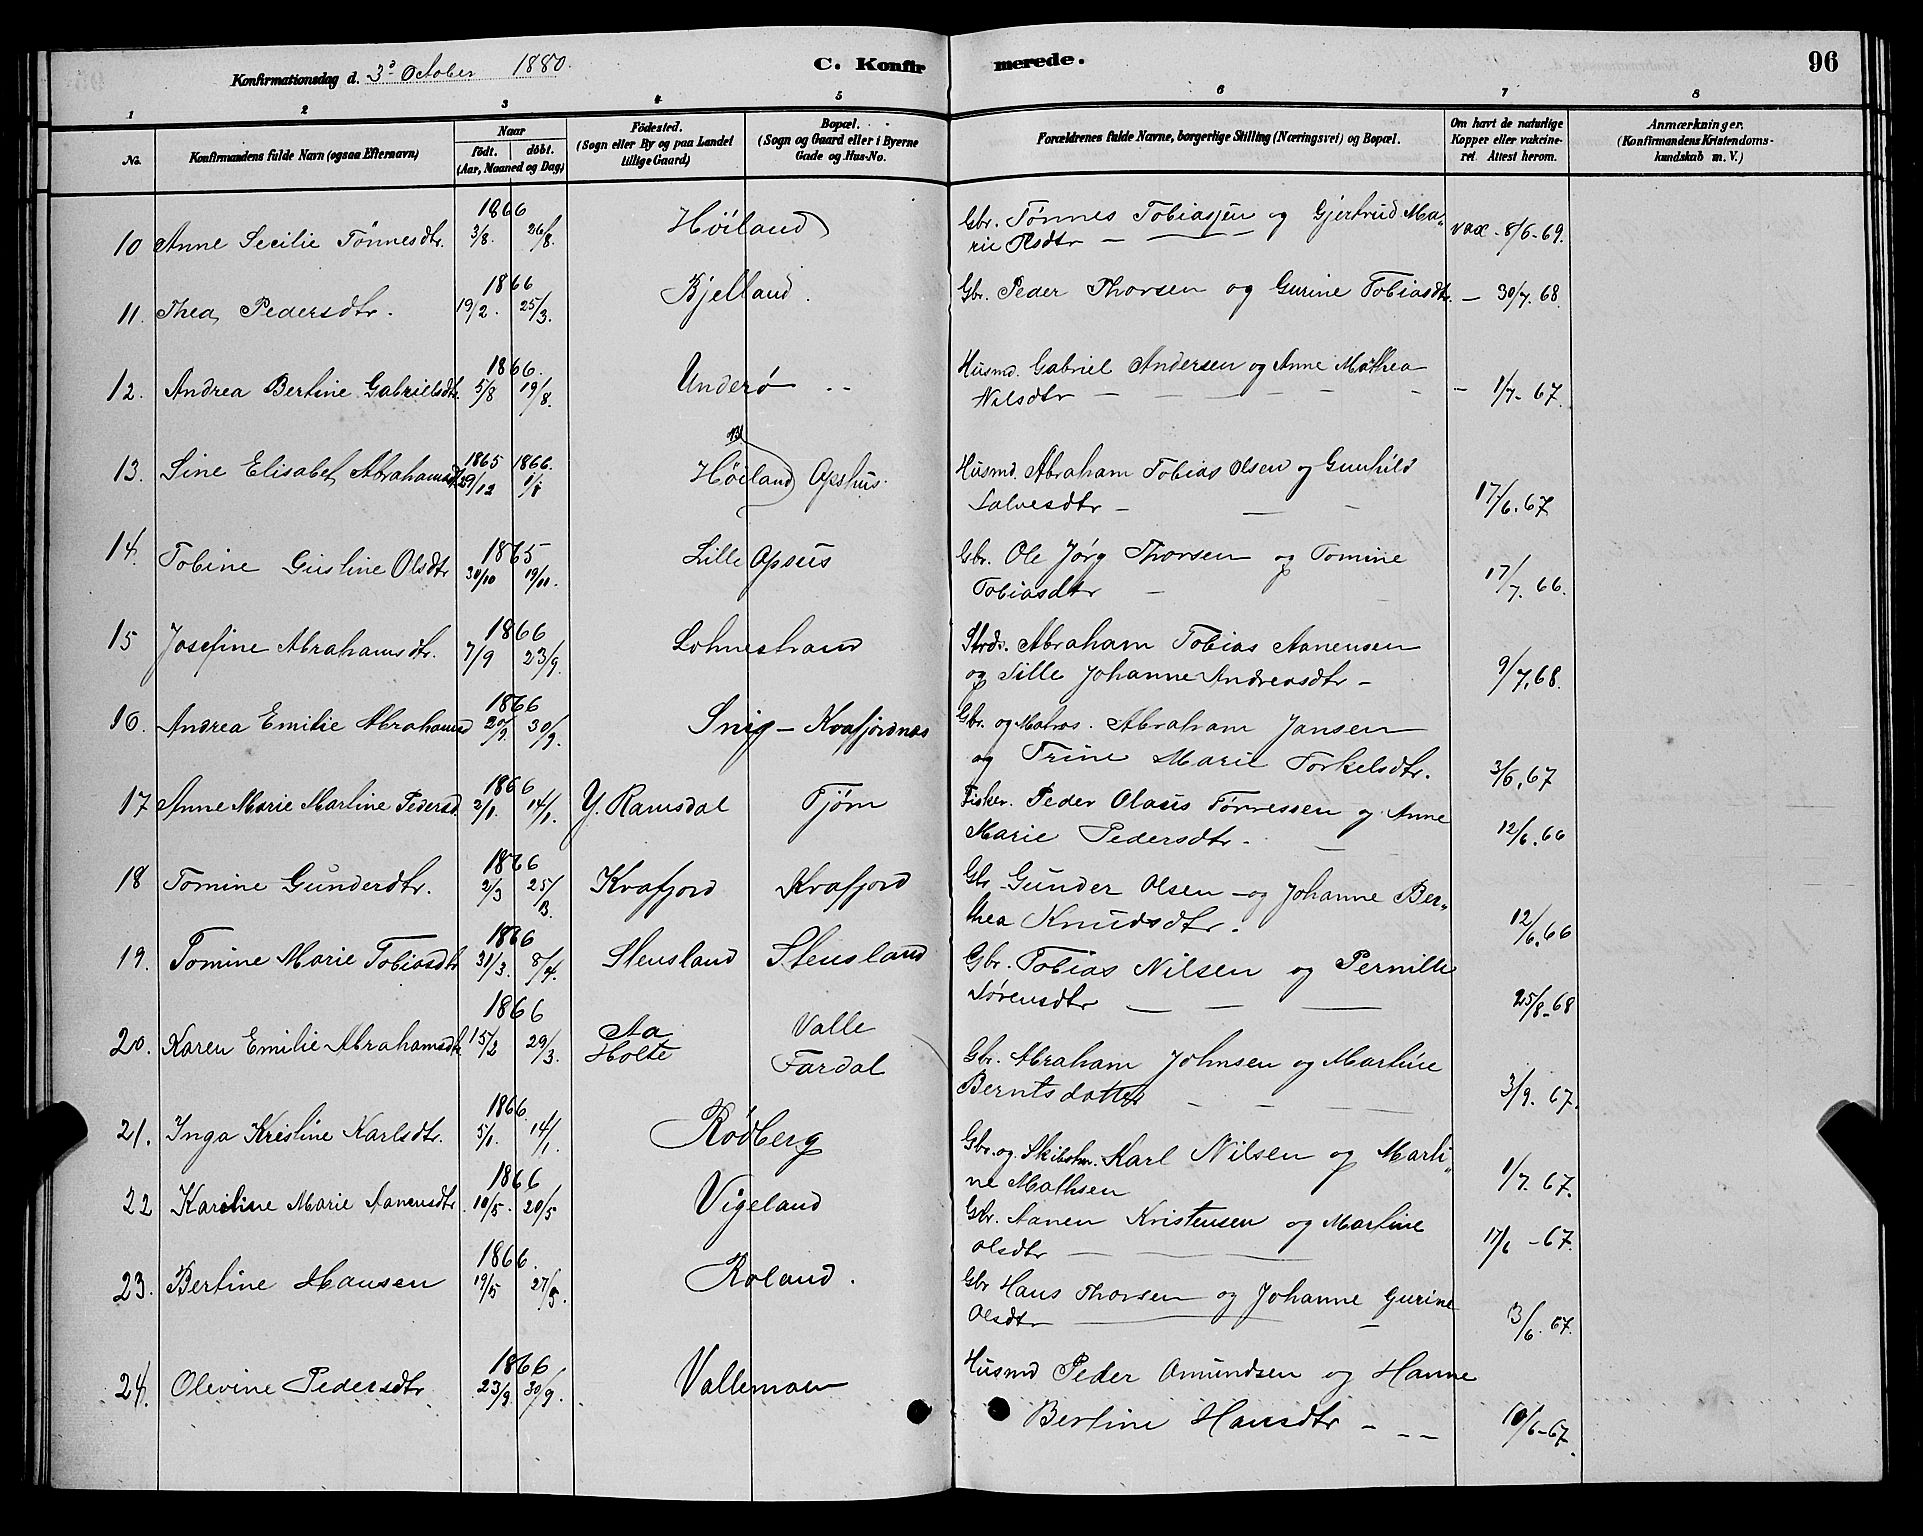 Konfirmationsdag d. 3d October 1880.
C. Konfirmerede.
96
1 2 3 4 5 6 7 8
No.
Konfirmandens fulde Navn (ogsaa Efternavn)
Naar
födt. döbt.
(Aar, Maaned og Dag)
Födested.
(Sogn eller By og paa Landet
tillige Gaard)
Bopæl.
(Sogn og Gaard eller i Byerne
Gade og Hus-No.
Forældrenes fulde Navne, borgerlige Stilling (Næringsvei) og Bopæl.
Om havt de naturlige
Kopper eller vakcine-
ret. Attest herom.
Anmærkninger.
(Konfirmandens Kristendoms-
kundskab m. V.)
10 Anne Secilie Tønnesdtr. 1866 3/8. 26/8. Höiland Gbr. Tønnes Tobiassen og Gjertrud Ma-
rie Olsdtr — vax - 8/6-69.
11. Thea Pedersdtr. 1866 19/2. 25/3. Kjelland. Gbr. Peder Thorsen og Gurine Tobiasdtr. — 30/7.68.
12. Andrea Bertine Gabrielsdtr. 1866. 5/8 19/8. Underö Husmd. Gabriel Andersen og Anne Mathea
Nilsdtr — — 1/7-67.
13. Sine Elisabet Abrahamsdt. 1865 29/12 1866. 1/1 Höiland Opshus. Husmd. Abraham Tobias Olsen og Gunhild
Salvesdtr — 17/6.67
14. Tobine Gustine Olsdtr 1865 30/10 19/11. Lille Opsus Gbr. Ole Jörg Thorsen og Tomine
Tobiasdtr — 17/7.66.
15 Josefine Abrahamsdtr. 1866 7/9 23/9. Lohnestrand Strds. Abraham Tobias Aanensen
og Sille Johanne Andreasdtr — 9/7.68.
16. Andrea Emilie Abrahamsd 1866 20/9. 30/9. Snig — Kvafjordnes Gbr. og Matros. Abraham Jansen
og Trine Marie Torkelsdtr. 3/6.67
17 Anne Marie Martine Pedersd. 1866 2/1. 14/1. Y. Ramsdal Tjøm Fisker. Peder Olaus Tønnessen og Anne
Marie Pedersdtr. 12/6.66
18 Tomine Gundersdtr. 1866 2/3 25/3. Kvafjord Kvafjord Gbr. Gunder Olsen — og Johanne Ber-
thea Knudsdtr. 12/6.66
19. Tomine Marie Tobiasdtr 1866 31/3. 8/4. Stensland Stensland Gbr. Tobias Nilsen og Pernille
Sørensdtr — 25/8-68
20. Karen Emilie Abrahamsdtr 1866 15/2 29/3. Aa
Holte Valle
Fardal Gbr. Abraham Johnsen og Martine
Berntsdatter — 3/9. 67.
21. Inga Kristine Karlsdtr. 1866. 5/1. 14/1. Rödberg Gbr. og Skibstm. Karl Nilsen og Marti-
ne Mathsen 1/7. 67.
22 Karoline Marie Aanensdtr. 1866 10/5. 20/5 Vigeland Gbr. Aanen Kristensen og Martine
Olsdtr — 17/6 - 67.
23. Bertine Hansen 1866. 19/5 27/5. Roland. Gbr Hans Thorsen og Johanne Gurine
Olsdtr — 3/6. 67.
24. Olevine Pedersdtr 1866 23/9 30/9. Vallemoen Husmd Peder Omundsen og Hanne
Bertine Hansdtr — 10/6-67.